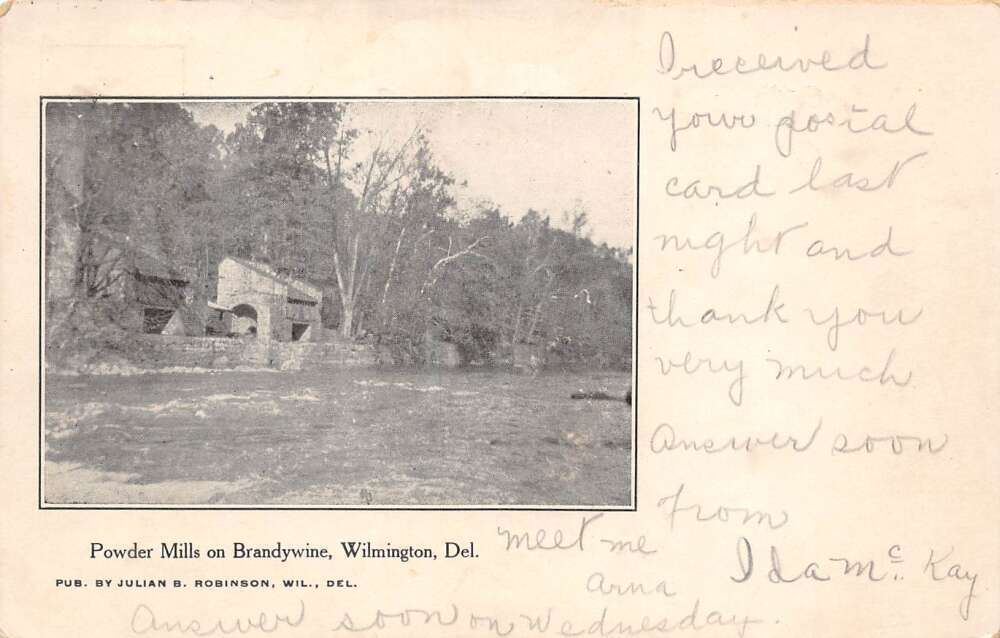 I received
your postal
card last
night and
thank you
very much
Answer soon
From
Ida Mc. Kay
meet me
Arna
Answer soon on Wednesday.
Powder Mills on Brandywine, Wilmington, Del.
PUB. BY JULIAN B. ROBINSON, WIL., DEL.